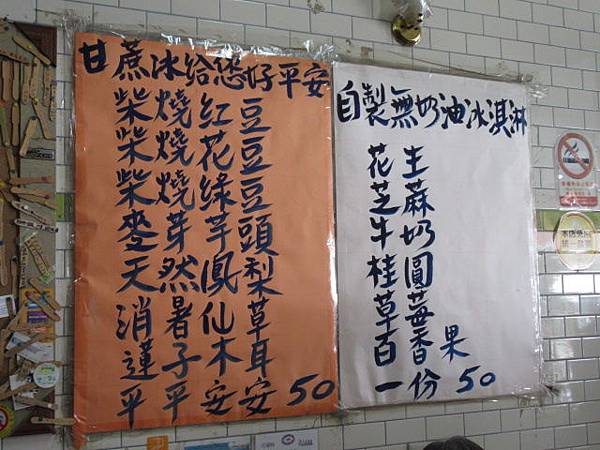 甘蔗冰給您好平安
柴燒紅豆
柴燒花豆
柴燒綠豆
麥芽芋頭
天然鳳梨
消暑仙草
蓮子木耳
平平安安 50
自製無奶油冰淇淋
花生
芝麻
牛奶
桂圓
草莓
百香果
一份 50